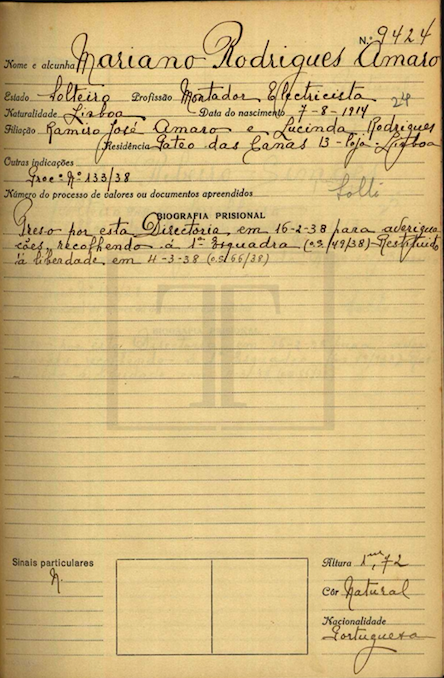 N.º 9424
Nome e alcunha Mariano Rodrigues Amaro
Estado Solteiro Profissão Montador Electricista
24
Naturalidade Lisboa Data do nascimento 7-8-1914
Filiação Ramiro José Amaro e Lucinda Rodrigues
Residência Pateo das Canas 13-loja-Lisboa
Outras indicações
Proc.º N.º 133/38
Número do processo de valores ou documentos apreendidos
Solti
BIOGRAFIA PRISIONAL
Preso por esta Directoria em 16-2-38 para averigua
ções, recolhendo á 1ª esquadra (o.s/49/38)-Restituido
á liberdade em 4-3-38 (o.s/66/38)
Sinais particulares
N.
Altura 1m,72
Côr Natural
Nacionalidade
Portuguesa